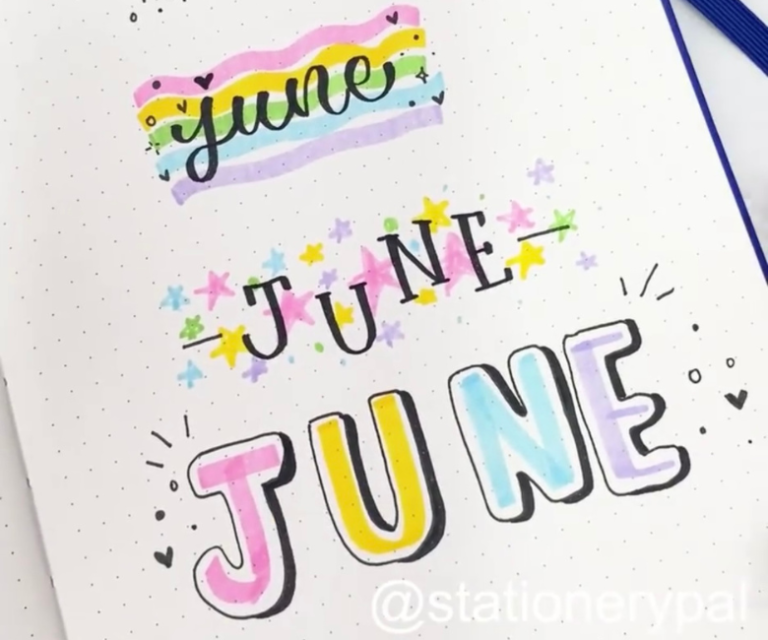 june
JUNE
JUNE
@stationerypal